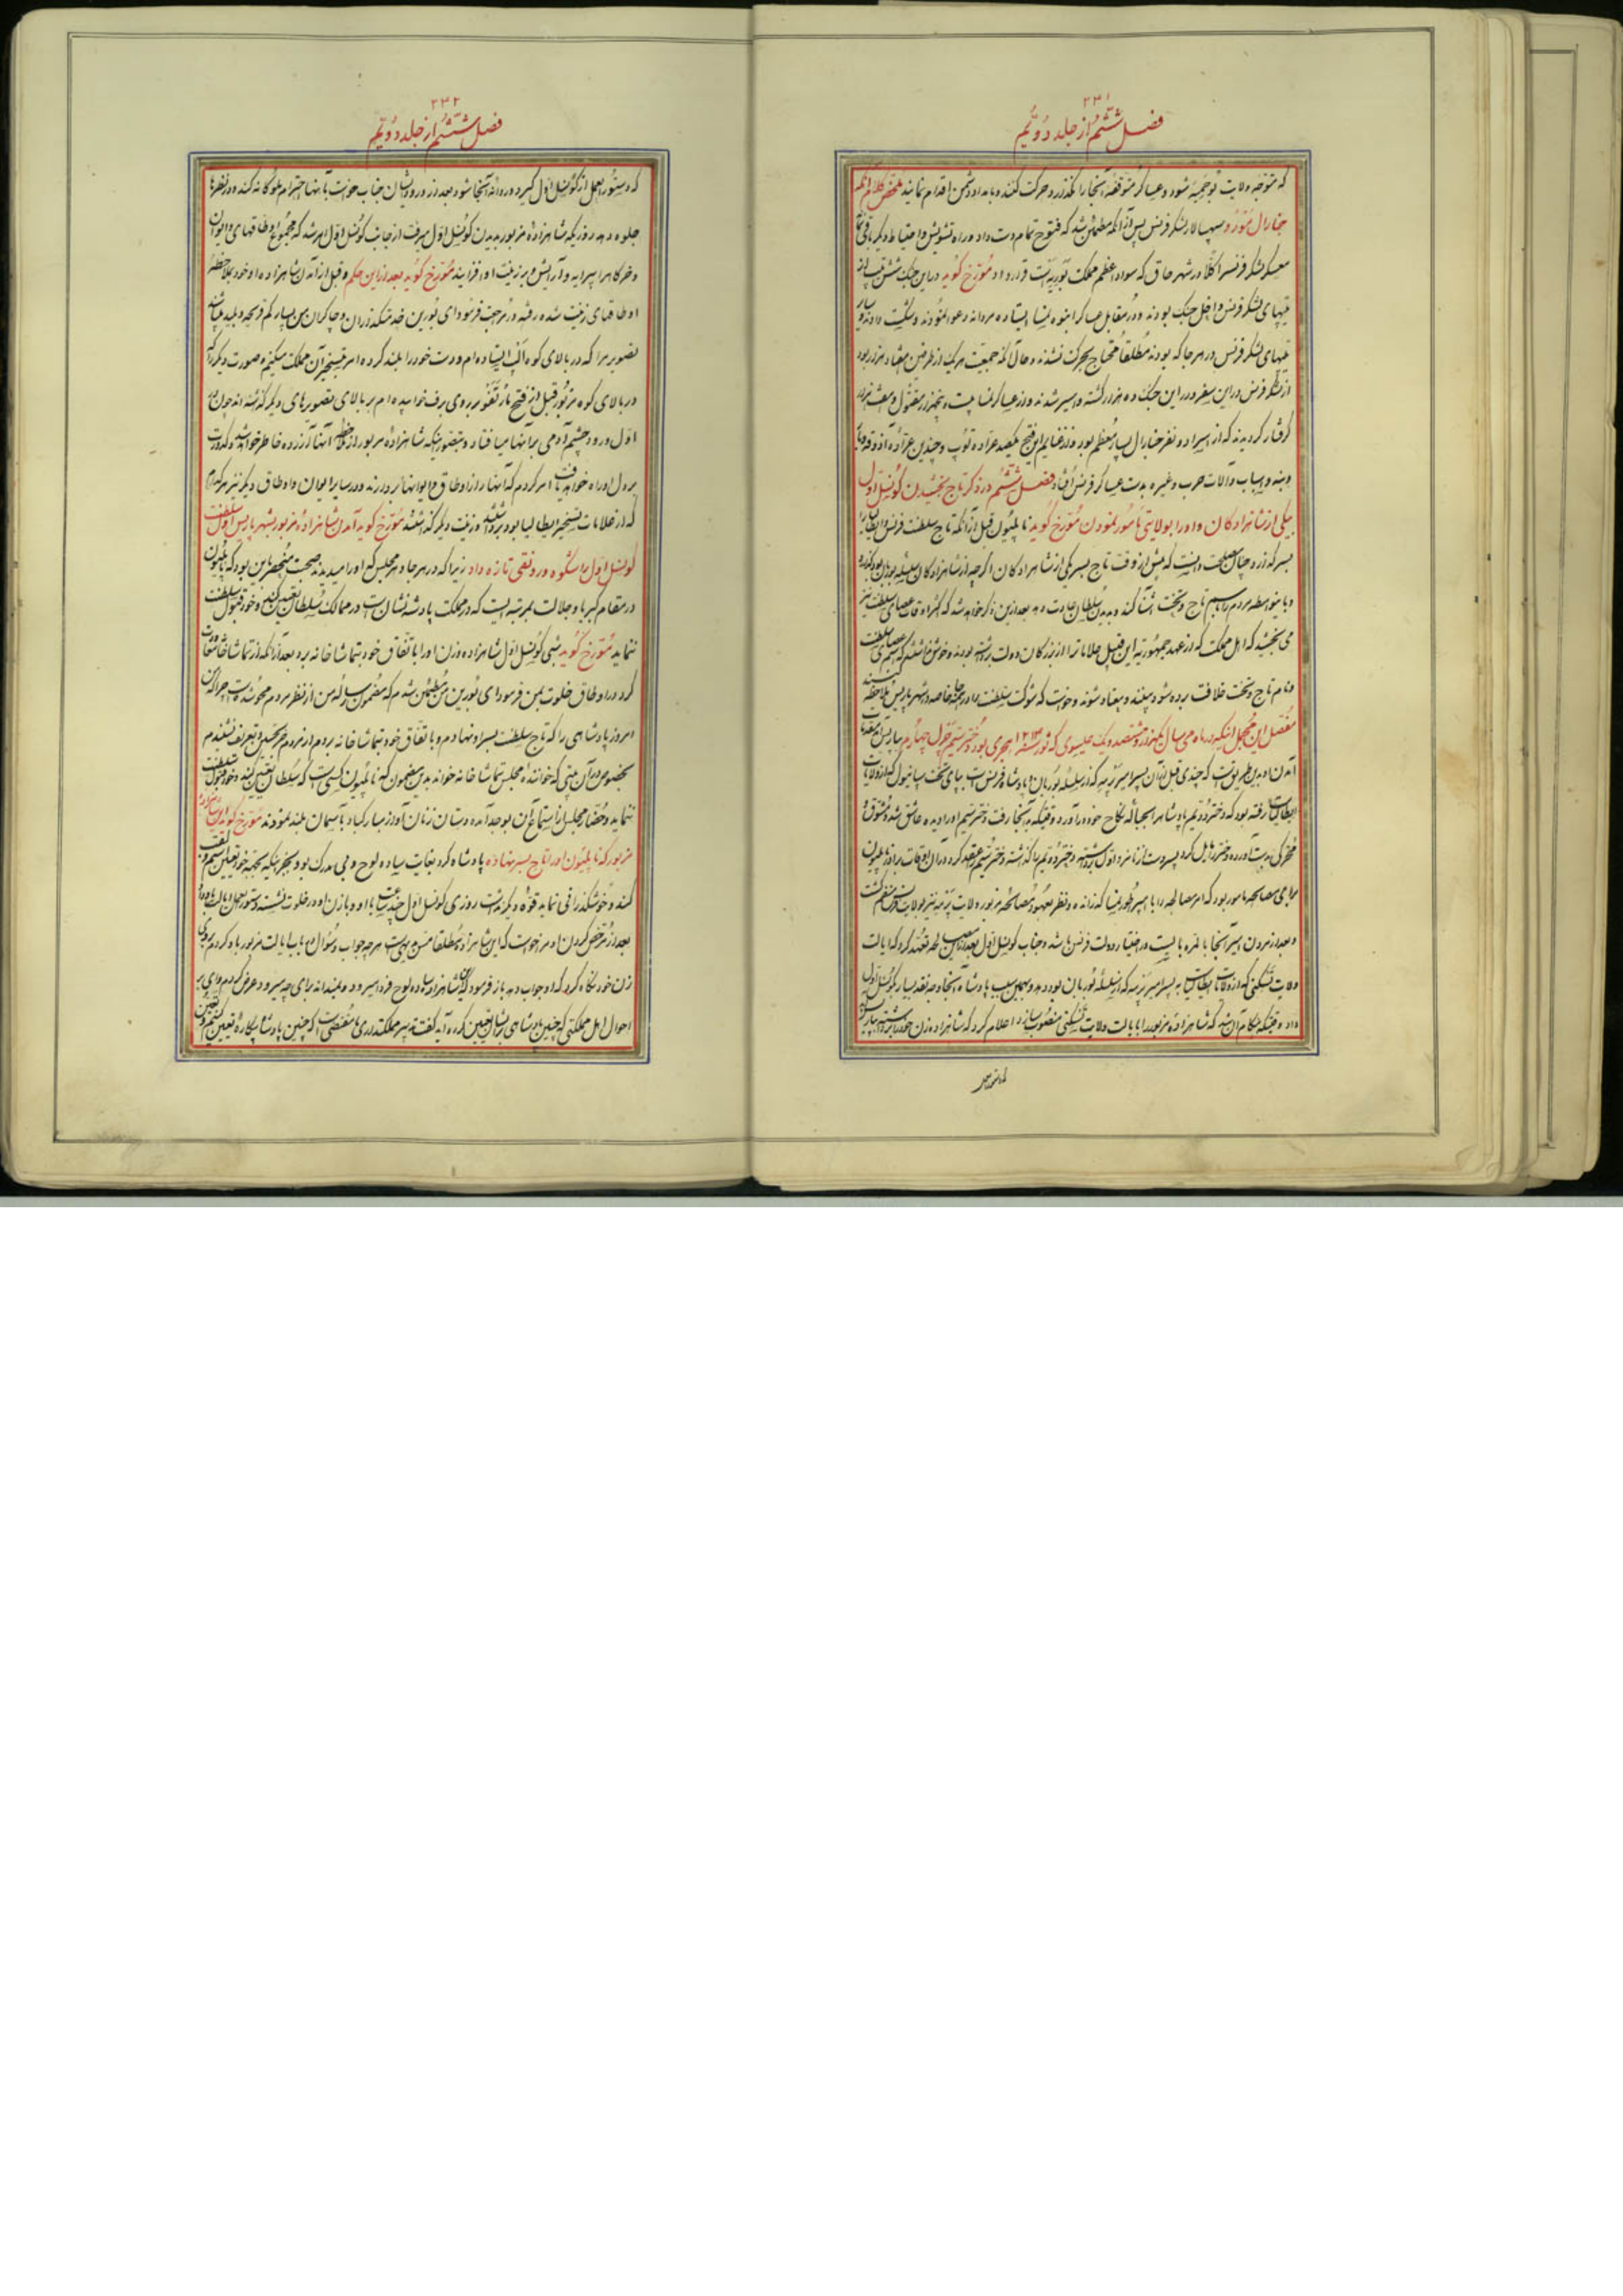 ۲۳۱
فصل ششم از جلد دویم
که متوجه ولایت شود و عساکر متوقفه آنجا را نگذارد حرکت کنند و بامداد دشمن اقدام نمایند ملخص کلام آنکه
جنارال مورو سپهسالار لشکر فرنس پس از آنکه مطمئن شد که فتوح تمام دست داد و راه تشویش و احتیاط دیگر باقی نماند
معسکر لشکر فرنس را کلا در شهر که سواد اعظم مملکت است قرار داد مورخ گوید در این جنک شش تیپ از
تیپهای لشکر فرنس داخل جنک بودند و در مقابل عساکر انبوه نمسا ایستاده مردانه دعوا نمودند و شکست دادند و سایر
تیپهای لشکر فرنس در هر جا که بودند مطلقا محتاج بحرکت نشدند و حال آنکه جمعیت هر یک از طرفین هفتاد هزار بود
از لشکر فرنس در این سفر و در این جنک ده هزار کشته و اسیر شدند و از عساکر نمسا بیست و پنجهزار مقتول و هشت هزار
گرفتار گردیدند که از اسرا دو نفر جنارال بسیار معظم بود و از غنایم این فتح یکصد عراده توپ و چندین عراده آذوقه
و بنه و اسباب و آلات حرب و غیره بدست عساکر فرنس افتاد فصل ششم در ذکر تاج بخشیدن کونسل اول
بیکی از شاهزادکان و او را بولایتی مامور نمودن مورخ گوید ناپلیون قبل از آنکه تاج سلطنت فرنس و ایطالیا را
بسر گذارد چنان مصلحت دانست که پیش از وقت تاج بسر یکی از شاهزادکان اگرچه از شاهزادکان سلسله بوربان بود گذارد
و باینواسطه مردم را باسم تاج و تخت آشنا کند و بدیدن سلطان عادت دهد بعد از این ذکر خواهد شد که اکثر اوقات عصای سلطنت نیز
می بخشید که اهل مملکت که از عهد جمهوریه این قبیل علامات را از بزرگان دولت برداشته بودند و خوش نداشتند که اسم عصای سلطنت
و نام تاج و تخت خلافت برده شود ببینند و معتاد شوند و خواست که شوکت سلطنت را در همه جا خاصه در شهر پاریس ملاحظه کنند
مفصل این مجمل آنکه در ماه می سال یکهزار و هشتصد و یک عیسوی که هجری بود دختر سیم قرال چهارم بپاریس آمد مقدمات
آمدن او بدین طریق است که چندی قبل از آن پسر امیر که از سلسله بوربان پادشاه فرنس است بپای تخت اسپانیول که از ولایات
رفته بود که دختر دویم پادشاه را بحباله نکاح خود درآورد وقتیکه به آنجا رفت دختر سیم او را دیده عاشق شد و معشوق
برای مصالحه مامور بود که امر مصالحه را با امپراطور نمسا گذرانده و نظر بعهود مصالحه مزبور ولایت نیز بولایت فرنس منضم گشت
و بعد از مردن امیر آنجا بالمره بایست در اختیار دولت فرنس باشد و جناب کونسل اول بعد از آن تعهد کرد که ایالت
ولایت که از ولایات ایطالیاست به پسر امیر که از سلسله بوربان بود دهد و بهمین سبب پادشاه آنجا وجه نقد بسیار بکونسل اول
داد وقتیکه هنگام آن شد که شاهزاده مزبور را بایالت ولایت منصوب سازد اعلام کرد که شاهزاده زن خود را برداشته بپاریس آید
۲۳۲
فصل ششم از جلد دویم
که دستورالعمل از کونسل اول گیرد و روانه آنجا شود بعد از ورود ایشان جناب خواست بآنها احترام ملوکانه کند و در نظرها
جلوه دهد روزیکه شاهزاده مزبور بدیدن کونسل اول میرفت از جانب کونسل اول امر شد که مجموع اوطاقهای و ایوان
و خرگاه را پیرایه و آرایش دهند و بر زینت او افزایند مورخ گوید بعد از این حکم و قبل از آمدن شاهزاده او خود بملاحظه
اوطاقهای زینت شده رفته و در مراجعت فرمود ای بورین خدمتگذاران و چاکران من بسیار کم فرهم و بلید میباشند
تصویر مرا که در بالای کوه الپ ایستاده ام و دست خود را بلند کرده امر بتسخیر آن مملکت میکنم و صورت دیگر را که
در بالای کوه مزبور قبل از فتح بر روی برف خوابیده ام بر بالای تصویرهای دیگر گذاشته اند چون در
اول ورود چشم آدمی بر آنها میافتاد و بتصور اینکه شاهزاده مزبور از ملاحظه آنها آزرده خاطر خواهد شد و کدورت
بر دل او راه خواهد یافت امر کردم که آنها را از اوطاق و ایوانها بردارند و در سایر ایوان و اوطاق دیگر نیز هر کدام
که از علامات تسخیر ایطالیا بود برداشتند و زینت دیگر گذاشتند مورخ گوید آمدن شاهزاده مزبور بشهر پاریس اول سلطنت
کونسل اول را شکوه و رونقی تازه داد زیرا که در هر جا و هر مجلس که او را میدیدند صحبت منحصر باین بود که ناپلیون
در مقام کبریا و جلالت بمرتبه ایست که در مملکت پادشه نشان است و در ممالک سلطان تعیین کند و خود قبول سلطنت
ننماید مورخ گوید شبی کونسل اول شاهزاده و زن او را باتفاق خود بتماشاخانه برد بعد از آنکه از تماشاخانه مراجعت
کرد در اوطاق خلوت بمن فرمود ای بورین من مطمئن شدم که مضمون از نظر مردم محو شده است چرا که من
امروز پادشاهی را که تاج سلطنت بسر او نهادم و باتفاق خود بتماشاخانه بردم از مردم جز تحسین و تعریف نشنیدم
بخصوص در آن بیتی که خواننده مجلس تماشاخانه خواند بدین مضمون که ناپلیون کسی است که سلطان تعیین کند و خود قبول سلطنت
ننماید و حضار مجلس از استماع آن بوجد آمده دستان زنان آواز مبارکباد بآسمان بلند نمودند مورخ گوید این شاهزاده
مزبور که ناپلیون او را تاج بسر نهاده پادشاه کرد بغایت ساده لوح و بی مدرک بود و بجز اینکه بجهة خود تعیین اسم و لقب
کند و خوشگذرانی نماید قوه دیگر نداشت روزی کونسل اول چند ساعت با او و با زن او در خلوت نشسته دستورالعمل ایالت باو داد
بعد از مرخص کردن او مرا خواست که این شاهزاده مطلقا هر چه جواب و سؤال در باب ایالت مزبور با او کردم بروی
زن خود نگاه کرد که او جواب دهد باز فرمود که این شاهزاده ساده لوح فردا میرود و نمیداند برای چه میرود عرض کردم وای بر
احوال اهل مملکتی که چنین پادشاهی برایشان تعیین کرده آید گفت